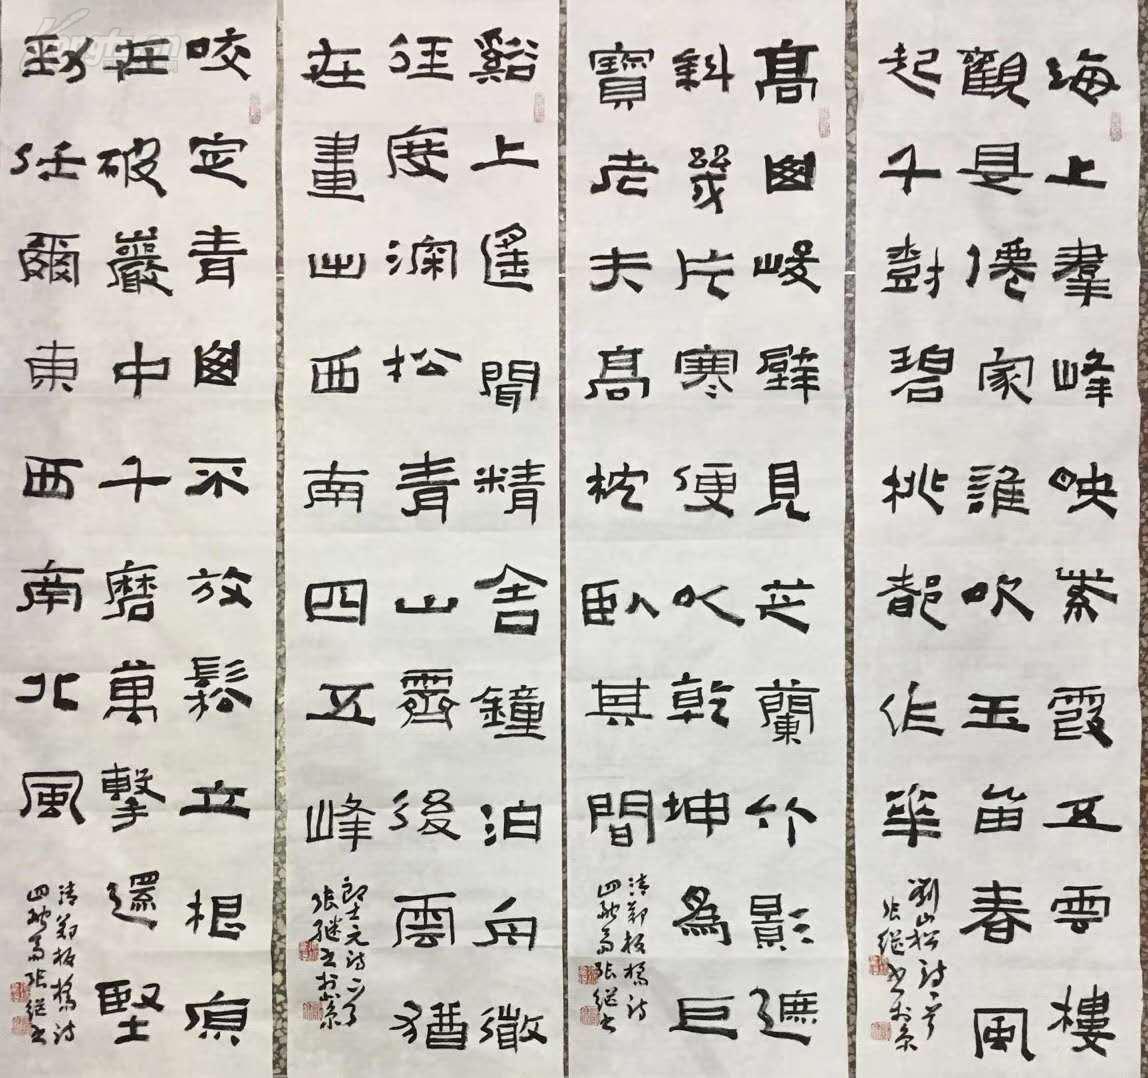 海上羣峰映紫霞五雲樓
觀是僊家誰吹玉笛春風
起千樹碧桃都作華
劉山松詩一首
張繼書於京
高山峻壁見芝蘭竹影遮
斜幾片寒便以乾坤為巨
寶老夫高枕臥其間
清鄭板橋詩
四融齋張繼書
谿上遙聞精舍鐘泊舟微
徑度深松青山霽後雲猶
在畫出西南四五峰
郎士元詩一首
張繼書於京
咬定青山不放鬆立根原
在破巖中千磨萬擊還堅
勁任爾東西南北風
清鄭板橋詩
四融齋張繼書